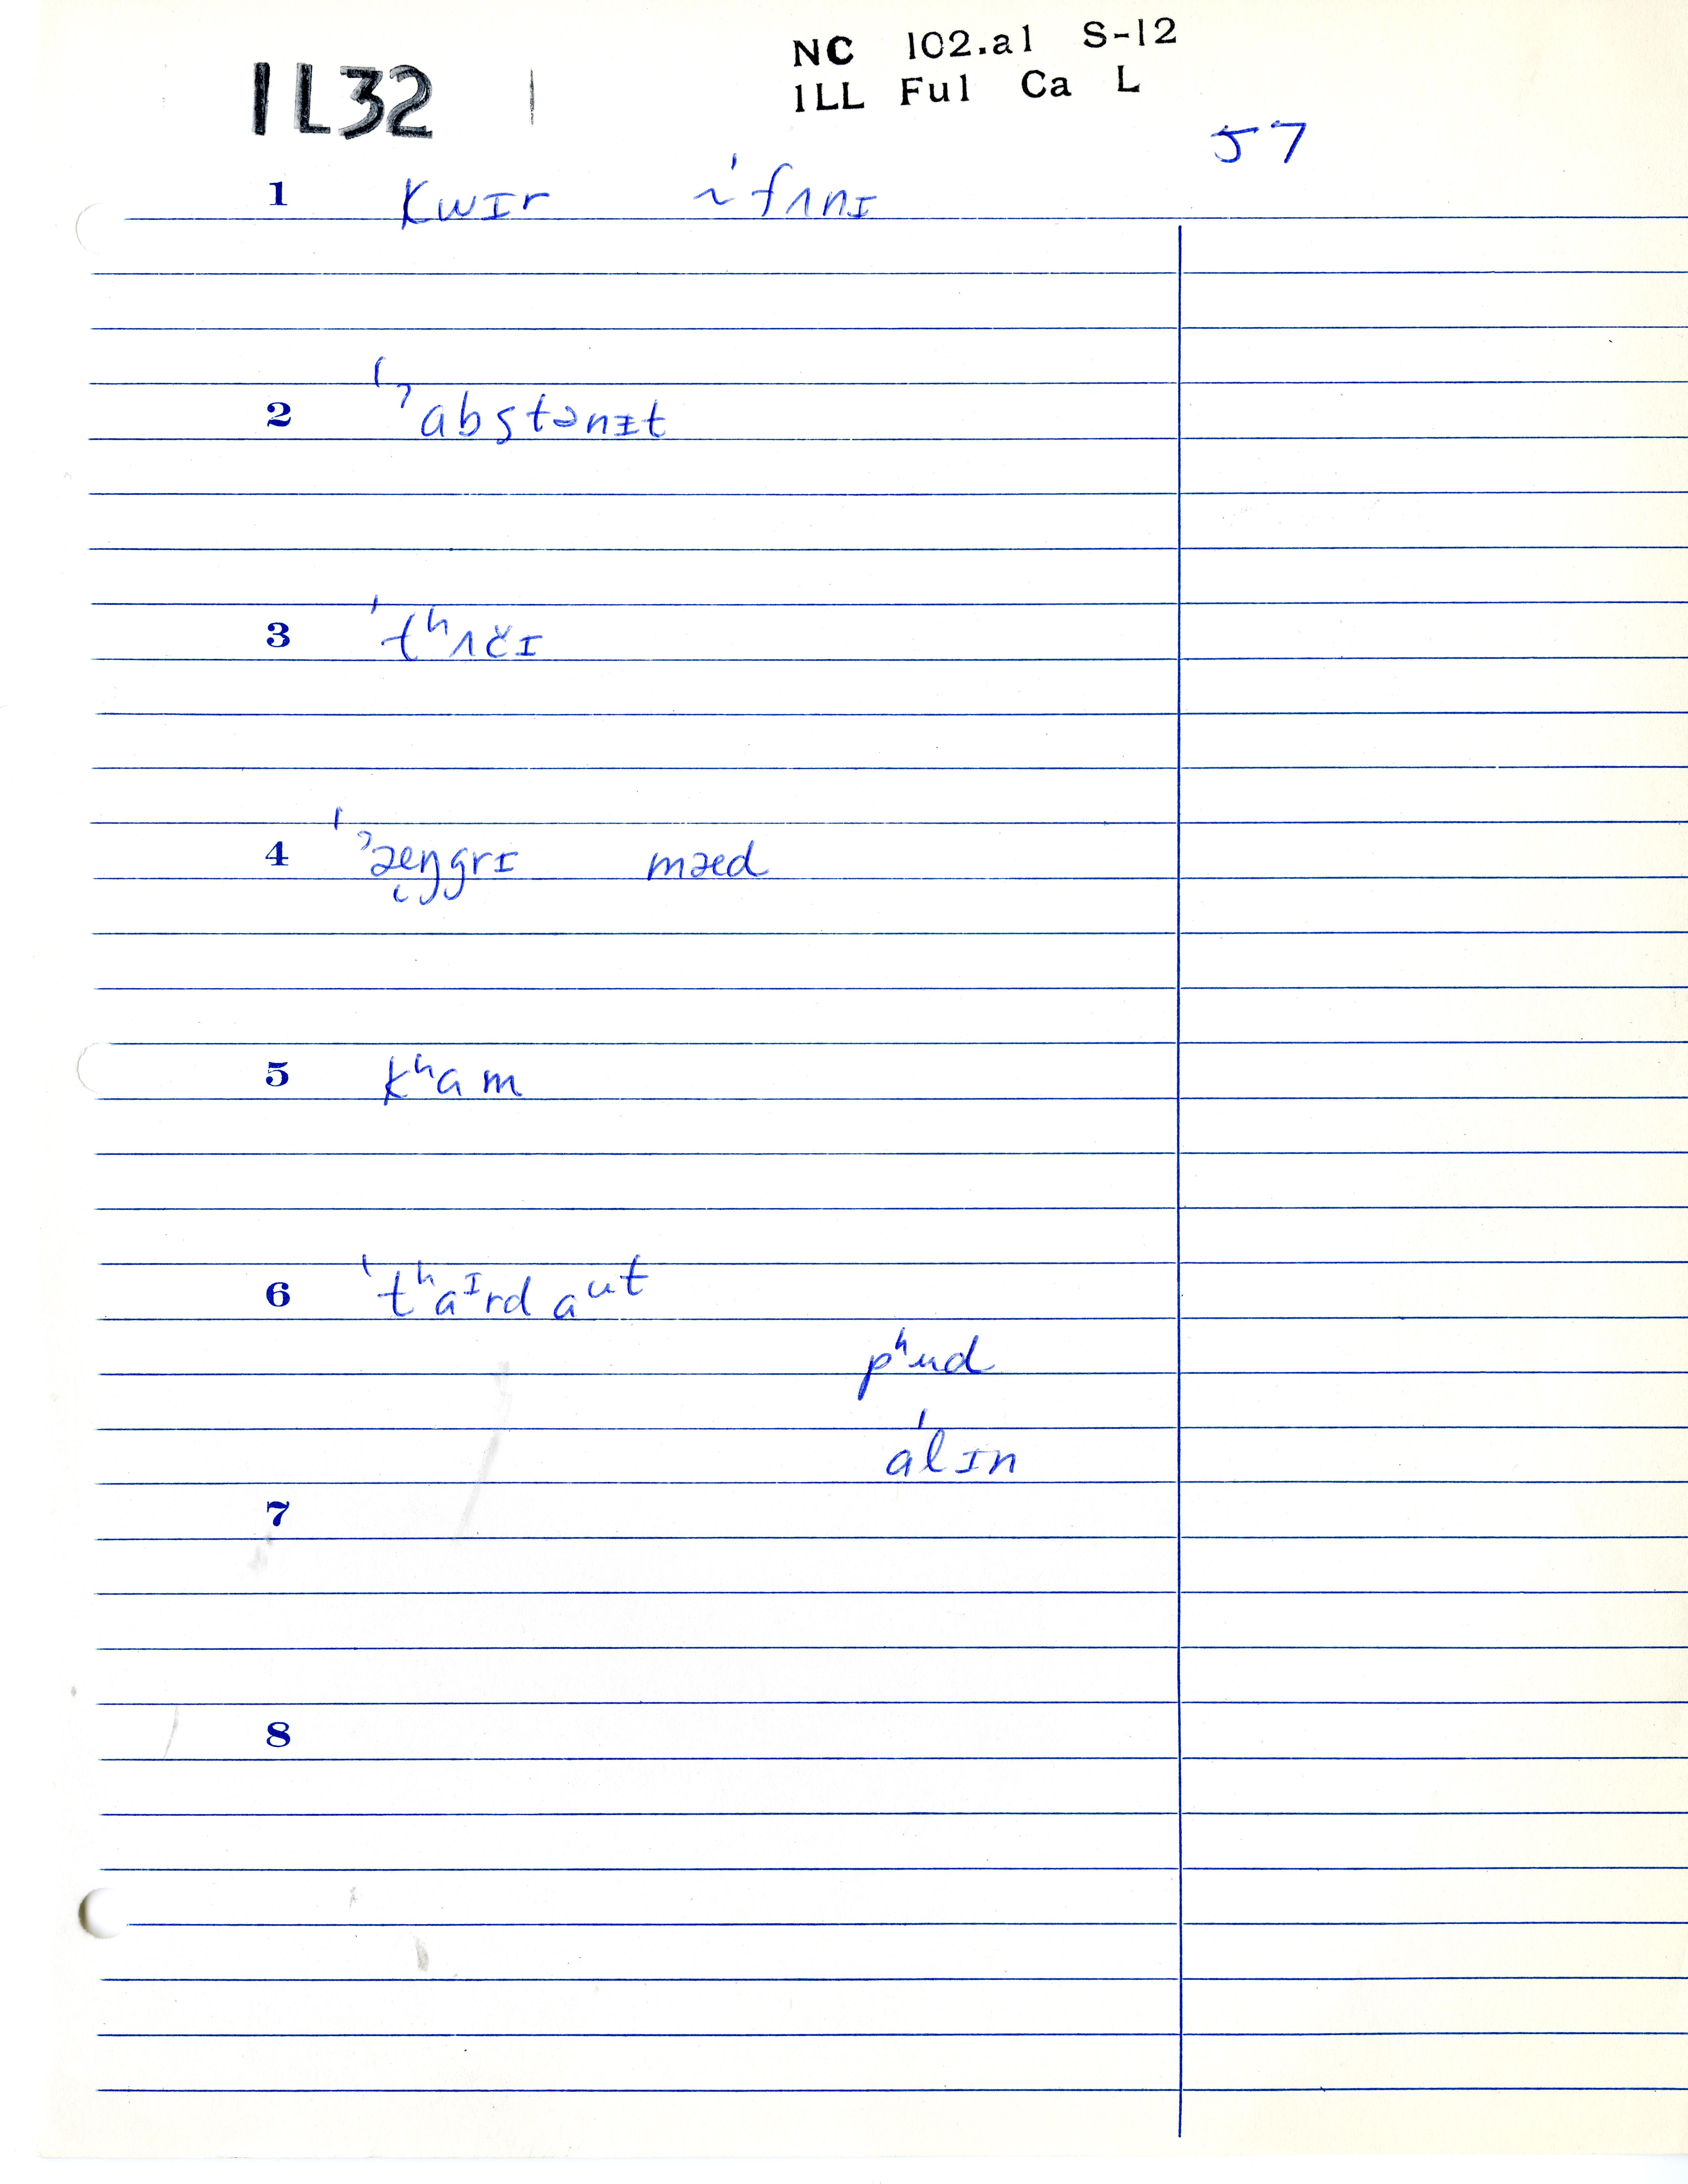 NC 102.a1 S-12
1L32 | 1LL Ful Ca L
57
1 kwɪr ~ ˈfʌnɪ
2 ˈˀabstənɪt
3 ˈtʰʌčɪ
4 ˈˀæŋgrɪ mæd
5 kʰam
6 ˈtʰaᴵrd aᵘt
pʰud
áˈlɪn
7
8